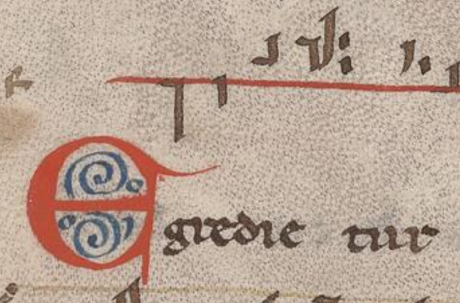 Egredie tur